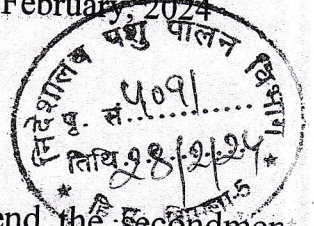 February, 2024
निदेशालय पशु पालन विभाग
पृ. सं. 4091
तिथि 28/2/24
हि. प्र. शिमला-5
end the secondmen